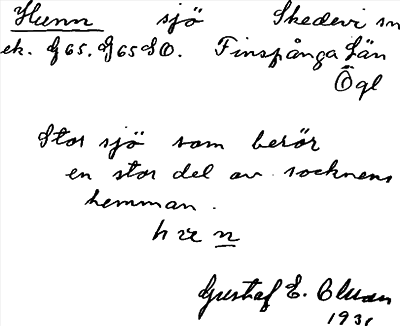 Hunn sjö Skedevi sn
ek. G65. G65SO. Finspånga Län
Ögl
Stor sjö som berör
en stor del av socknens
hemman.
Gustaf E.